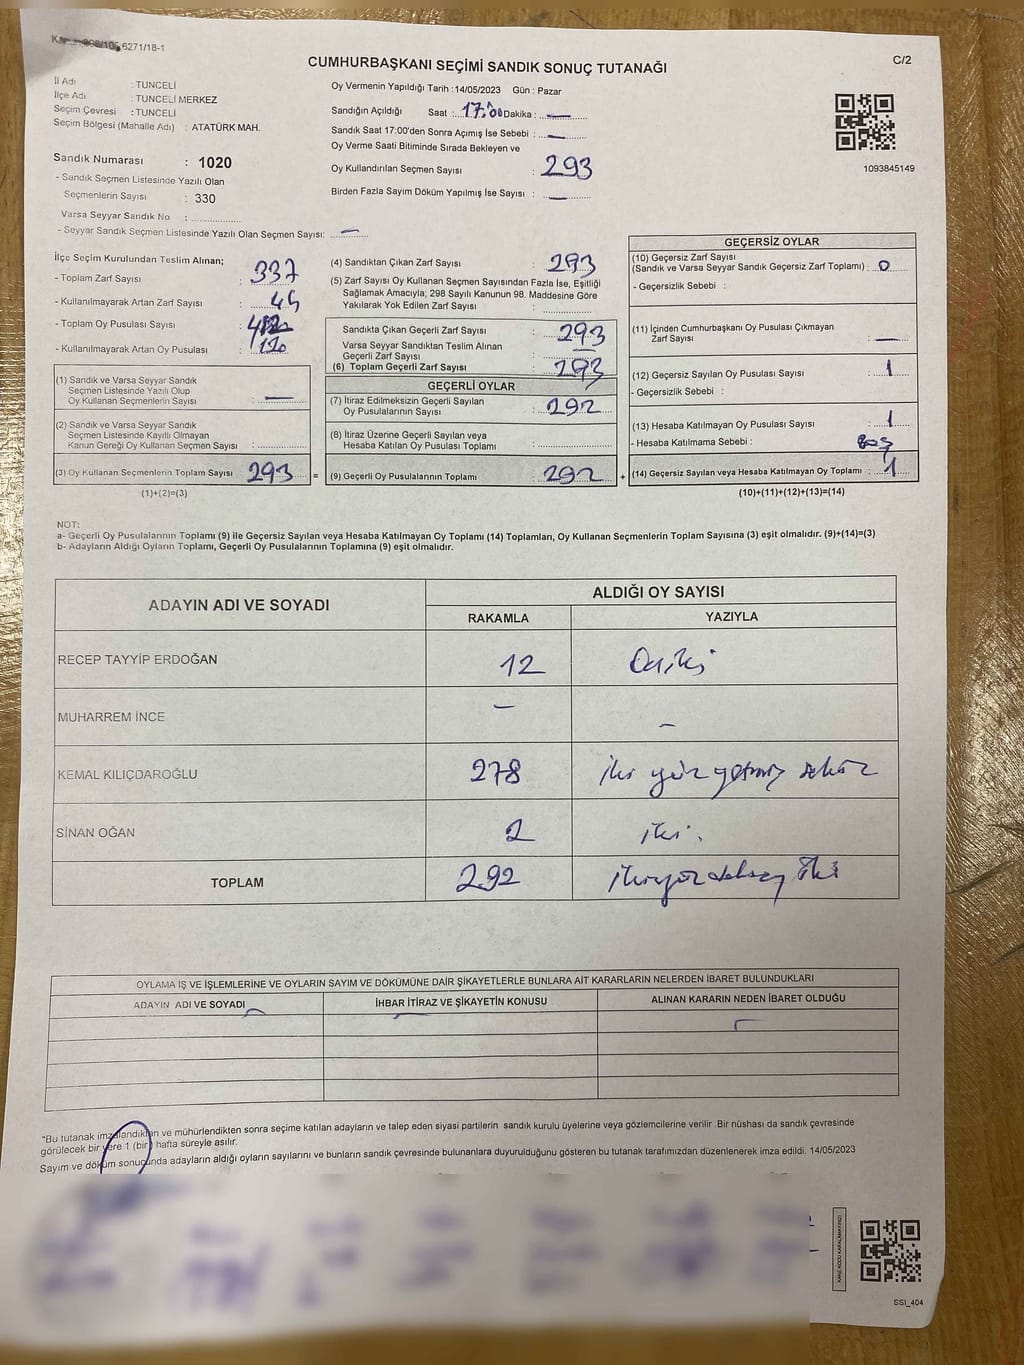 6271/18-1
CUMHURBAŞKANI SEÇİMİ SANDIK SONUÇ TUTANAĞI
C/2
İl Adı : TUNCELİ
İlçe Adı : TUNCELİ MERKEZ
Seçim Çevresi : TUNCELİ
Seçim Bölgesi (Mahalle Adı) : ATATÜRK MAH.
Sandık Numarası : 1020
- Sandık Seçmen Listesinde Yazılı Olan
Seçmenlerin Sayısı : 330
Varsa Seyyar Sandık No :
- Seyyar Sandık Seçmen Listesinde Yazılı Olan Seçmen Sayısı: —
Oy Vermenin Yapıldığı Tarih :14/05/2023 Gün : Pazar
Sandığın Açıldığı Saat : 17:00 Dakika : —
Sandık Saat 17:00'den Sonra Açımış İse Sebebi : —
Oy Verme Saati Bitiminde Sırada Bekleyen ve
Oy Kullandırılan Seçmen Sayısı : 293
Birden Fazla Sayım Döküm Yapılmış İse Sayısı : —
1093845149
İlçe Seçim Kurulundan Teslim Alınan;
- Toplam Zarf Sayısı : 337
- Kullanılmayarak Artan Zarf Sayısı : 44
- Toplam Oy Pusulası Sayısı :
- Kullanılmayarak Artan Oy Pusulası : 120
(1) Sandık ve Varsa Seyyar Sandık
Seçmen Listesinde Yazılı Olup
Oy Kullanan Seçmenlerin Sayısı : —
(2) Sandık ve Varsa Seyyar Sandık
Seçmen Listesinde Kayıtlı Olmayan
Kanun Gereği Oy Kullanan Seçmen Sayısı :
(3) Oy Kullanan Seçmenlerin Toplam Sayısı : 293 =
(1)+(2)=(3)
(4) Sandıktan Çıkan Zarf Sayısı : 293
(5) Zarf Sayısı Oy Kullanan Seçmen Sayısından Fazla İse, Eşitliği
Sağlamak Amacıyla, 298 Sayılı Kanunun 98. Maddesine Göre
Yakılarak Yok Edilen Zarf Sayısı :
Sandıkta Çıkan Geçerli Zarf Sayısı : 293
Varsa Seyyar Sandıktan Teslim Alınan
Geçerli Zarf Sayısı : —
(6) Toplam Geçerli Zarf Sayısı : 293
GEÇERLİ OYLAR
(7) İtiraz Edilmeksizin Geçerli Sayılan
Oy Pusulalarının Sayısı : 292
(8) İtiraz Üzerine Geçerli Sayılan veya
Hesaba Katılan Oy Pusulası Toplamı :
(9) Geçerli Oy Pusulalarının Toplamı : 292 +
GEÇERSİZ OYLAR
(10) Geçersiz Zarf Sayısı
(Sandık ve Varsa Seyyar Sandık Geçersiz Zarf Toplamı) : 0
- Geçersizlik Sebebi :
(11) İçinden Cumhurbaşkanı Oy Pusulası Çıkmayan
Zarf Sayısı : —
(12) Geçersiz Sayılan Oy Pusulası Sayısı : 1
- Geçersizlik Sebebi :
(13) Hesaba Katılmayan Oy Pusulası Sayısı : 1
- Hesaba Katılmama Sebebi : Boş
(14) Geçersiz Sayılan veya Hesaba Katılmayan Oy Toplamı : 1
(10)+(11)+(12)+(13)=(14)
NOT:
a- Geçerli Oy Pusulalarının Toplamı (9) ile Geçersiz Sayılan veya Hesaba Katılmayan Oy Toplamı (14) Toplamları, Oy Kullanan Seçmenlerin Toplam Sayısına (3) eşit olmalıdır. (9)+(14)=(3)
b- Adayların Aldığı Oyların Toplamı, Geçerli Oy Pusulalarının Toplamına (9) eşit olmalıdır.
ADAYIN ADI VE SOYADI
ALDIĞI OY SAYISI
RAKAMLA YAZIYLA
RECEP TAYYİP ERDOĞAN 12 Oniki
MUHARREM İNCE — —
KEMAL KILIÇDAROĞLU 278 iki yüz yetmiş sekiz
SİNAN OĞAN 2 iki.
TOPLAM 292 ikiyüz doksan iki
OYLAMA İŞ VE İŞLEMLERİNE VE OYLARIN SAYIM VE DÖKÜMÜNE DAİR ŞİKAYETLERLE BUNLARA AİT KARARLARIN NELERDEN İBARET BULUNDUKLARI
ADAYIN ADI VE SOYADI İHBAR İTİRAZ VE ŞİKAYETİN KONUSU ALINAN KARARIN NEDEN İBARET OLDUĞU
*Bu tutanak imzalandıktan ve mühürlendikten sonra seçime katılan adayların ve talep eden siyasi partilerin sandık kurulu üyelerine veya gözlemcilerine verilir .Bir nüshası da sandık çevresinde
görülecek bir yere 1 (bir) hafta süreyle asılır.
Sayım ve döküm sonucunda adayların aldığı oyların sayılarını ve bunların sandık çevresinde bulunanlara duyurulduğunu gösteren bu tutanak tarafımızdan düzenlenerek imza edildi. 14/05/2023
SSI_404